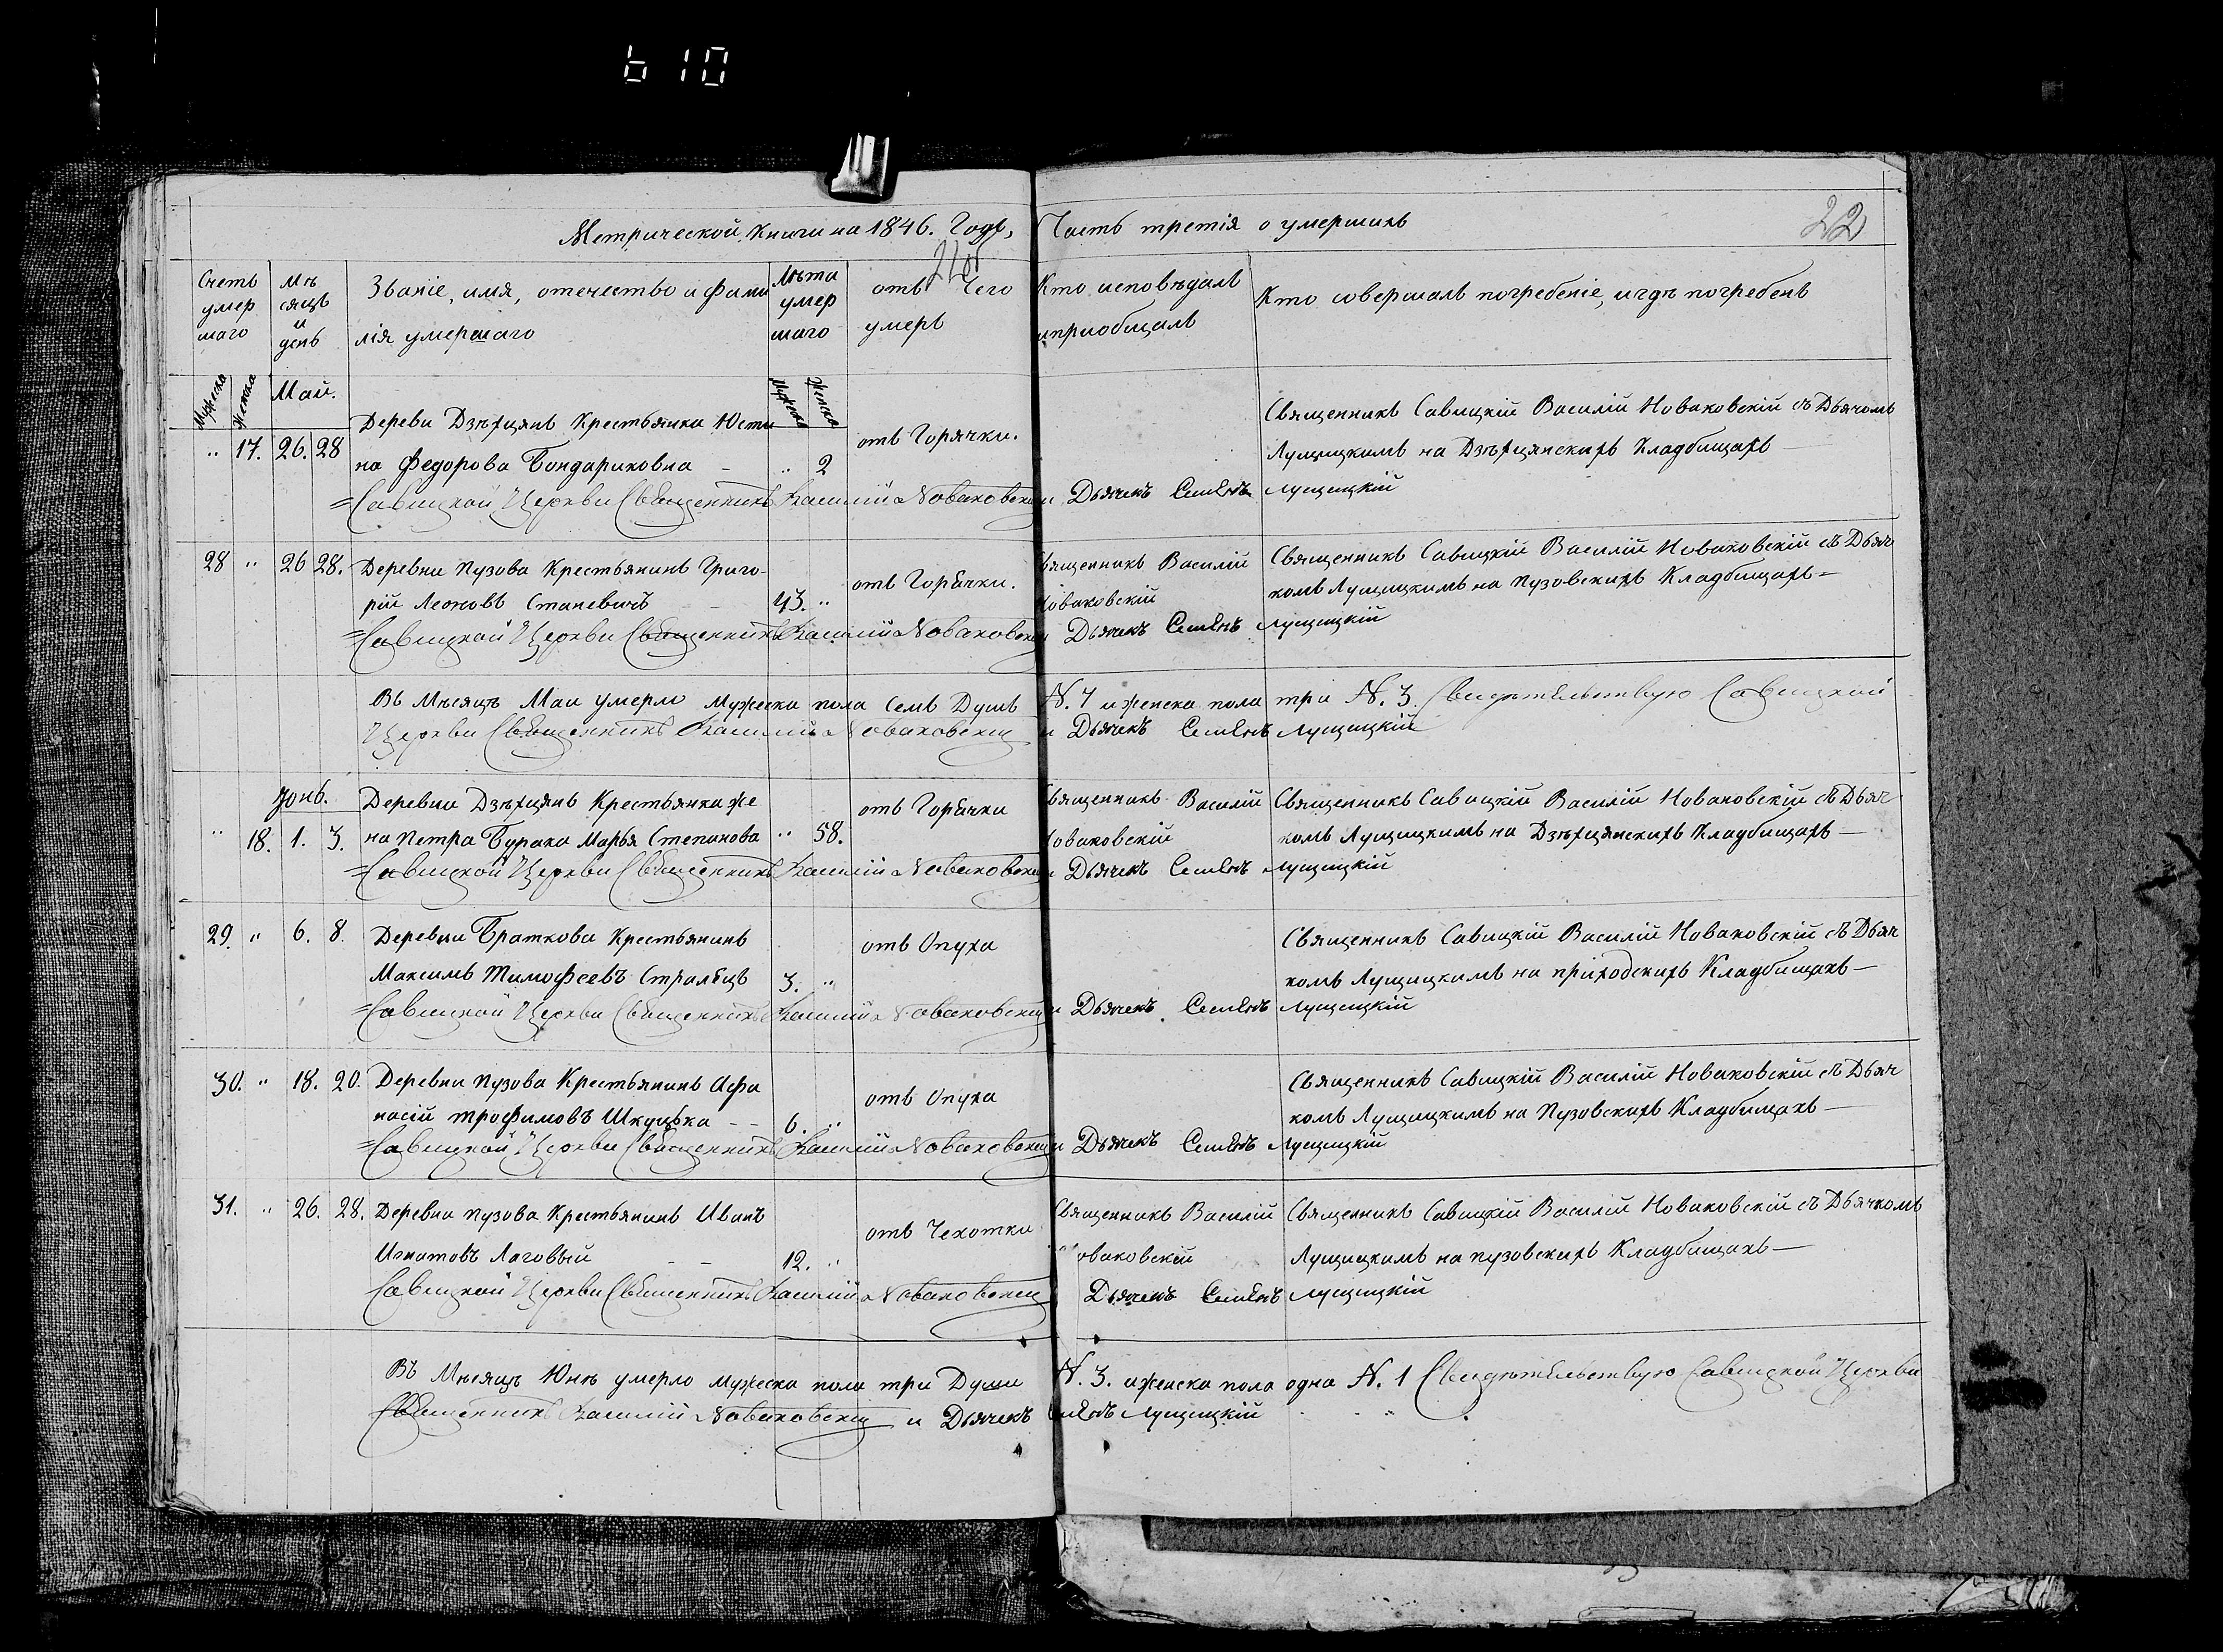 610
Метрической книги на 1846. Годъ, Часть третія о умершихъ
22
Счетъ умер шаго
Мѣ сяцъ и день
Званіе, имя, отечество и фами лія умершаго
Лѣта умер шаго
отъ Чего умеръ
Кто исповѣдалъ и пріобщалъ
Кто совершалъ погребеніе, и гдѣ погребенъ
Мужеска Женска Май. Мужеска Женска
Деревн Дзѣхцянъ Крестьянка Юсти
" 17. 26. 28 на Федорова Бондариковна - " 2
отъ Горячки.
Священникъ Савицкій Василій Новаковскій съ Дьячкомъ
Лущицкимъ на Дзѣхцянскихъ Кладбищахъ —
=Савицкой Церкви Священникъ Василій Новаковскій и Дьячекъ Семенъ Лущицкій
28 " 26 28. Деревни Пузова Крестьянинъ Григо-
рій Леоновъ Станевичъ - - 43. "
отъ Горячки.
Священникъ Василій
Новаковскій
Священникъ Савицкій Василій Новаковскій съ Дьяч
комъ Лущицкимъ на Пузовскихъ Кладбищахъ —
=Савицкой Церкви Священникъ Василій Новаковскій и Дьячекъ Семенъ Лущицкій
Въ Мѣсяцѣ Маи умерло мужеска пола семь Душъ N. 7 и женска пола три N. 3. Свидѣтельствую Савицкой
Церкви Священникъ Василій Новаковскій и Дьячекъ Семенъ Лущицкій
Іюнь.
Деревни Дзѣхцянъ Крестьянка же
" 18. 1. 3. на Петра Бурака Марья Степанова " 58.
отъ Горячки
Священникъ Василій
Новаковскій
Священникъ Савицкій Василій Новаковскій съ Дьяч
комъ Лущицкимъ на Дзѣхцянскихъ Кладбищахъ —
=Савицкой Церкви Священникъ Василій Новаковскій и Дьячекъ Семенъ Лущицкій
29. " 6. 8. Деревни Браткова Крестьянинъ
Максимъ Тимофеевъ Стралецъ 3. "
отъ Опуха
Священникъ Савицкій Василій Новаковскій съ Дьяч
комъ Лущицкимъ на приходскихъ Кладбищахъ —
=Савицкой Церкви Священникъ Василій Новаковскій и Дьячекъ Семенъ Лущицкій
30. " 18. 20. Деревни Пузова Крестьянинъ Афа
насій Трофимовъ Шкуцька - - 6. "
отъ Опуха
Священникъ Савицкій Василій Новаковскій съ Дьяч
комъ Лущицкимъ на Пузовскихъ Кладбищахъ —
=Савицкой Церкви Священникъ Василій Новаковскій и Дьячекъ Семенъ Лущицкій
31. " 26. 28. Деревни Пузова Крестьянинъ Иванъ
Игнатовъ Лаговый - - 12. "
отъ Чехотки
Священникъ Василій
Новаковскій
Священникъ Савицкій Василій Новаковскій съ Дьячкомъ
Лущицкимъ на пузовскихъ Кладбищахъ —
Савицкой Церкви Священникъ Василій Новаковскій Дьячекъ Семенъ Лущицкій
Въ Мѣсяцѣ Юнѣ умерло мужеска пола три Души N. 3. и женска пола одна N. 1 Свидѣтельствую Савицкой Церкви
Священникъ Василій Новаковскій и Дьячекъ Семенъ Лущицкій